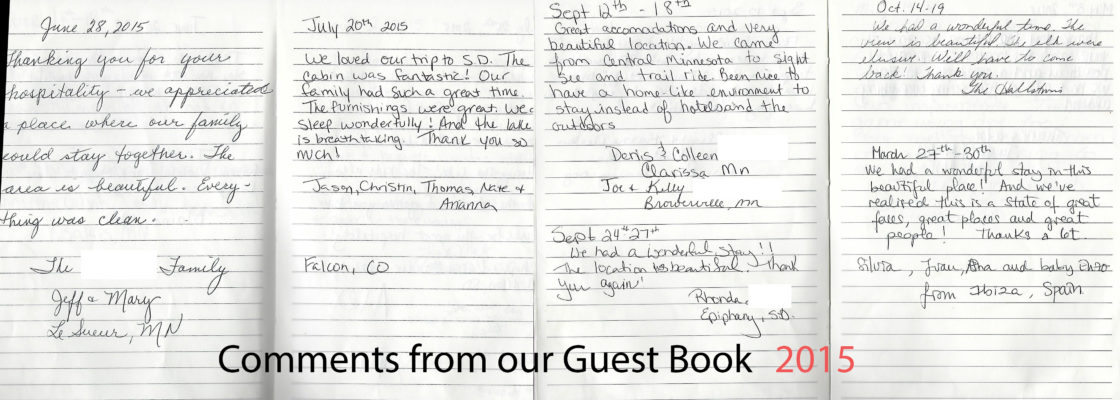 June 28, 2015
Thanking you for your
hospitality - we appreciated
a place where our family
could stay together. The
area is beautiful. Every-
thing was clean.
The Family
Jeff & Mary
Le Sueur, MN
July 20th 2015
We loved our trip to S.D. The
cabin was fantastic! Our
family had such a great time.
The furnishings were great. We
sleep wonderfully! And the lake
is breathtaking. Thank you so
much!
Jason, Christin, Thomas, Nate &
Arianna
Falcon, CO
Sept 12th - 18th
Great accomodations and very
beautiful location. We came
from Central Minnesota to sight
see and trail ride. Been nice to
have a home-like environment to
stay instead of hotels and the
outdoors
Denis & Colleen
Clarissa Mn
Joe & Kelly
Browerville, mn
Sept 24th 27th
We had a wonderful stay!!
The location is beautiful. Thank
you again!
Rhonda,
Epiphany, S.D.
Oct. 14-19
We had a wonderful time. The
view is beautiful. The elk were
elusive. Will have to come
back! Thank you.
The Hallstroms
March 27th - 30th
We had a wonderful stay in this
beautiful place! And we've
realized this is a state of great
faces, great places and great
people! Thanks a lot.
Silvia, Juan, Ana and baby Enzo
from Ibiza, Spain
Comments from our Guest Book 2015